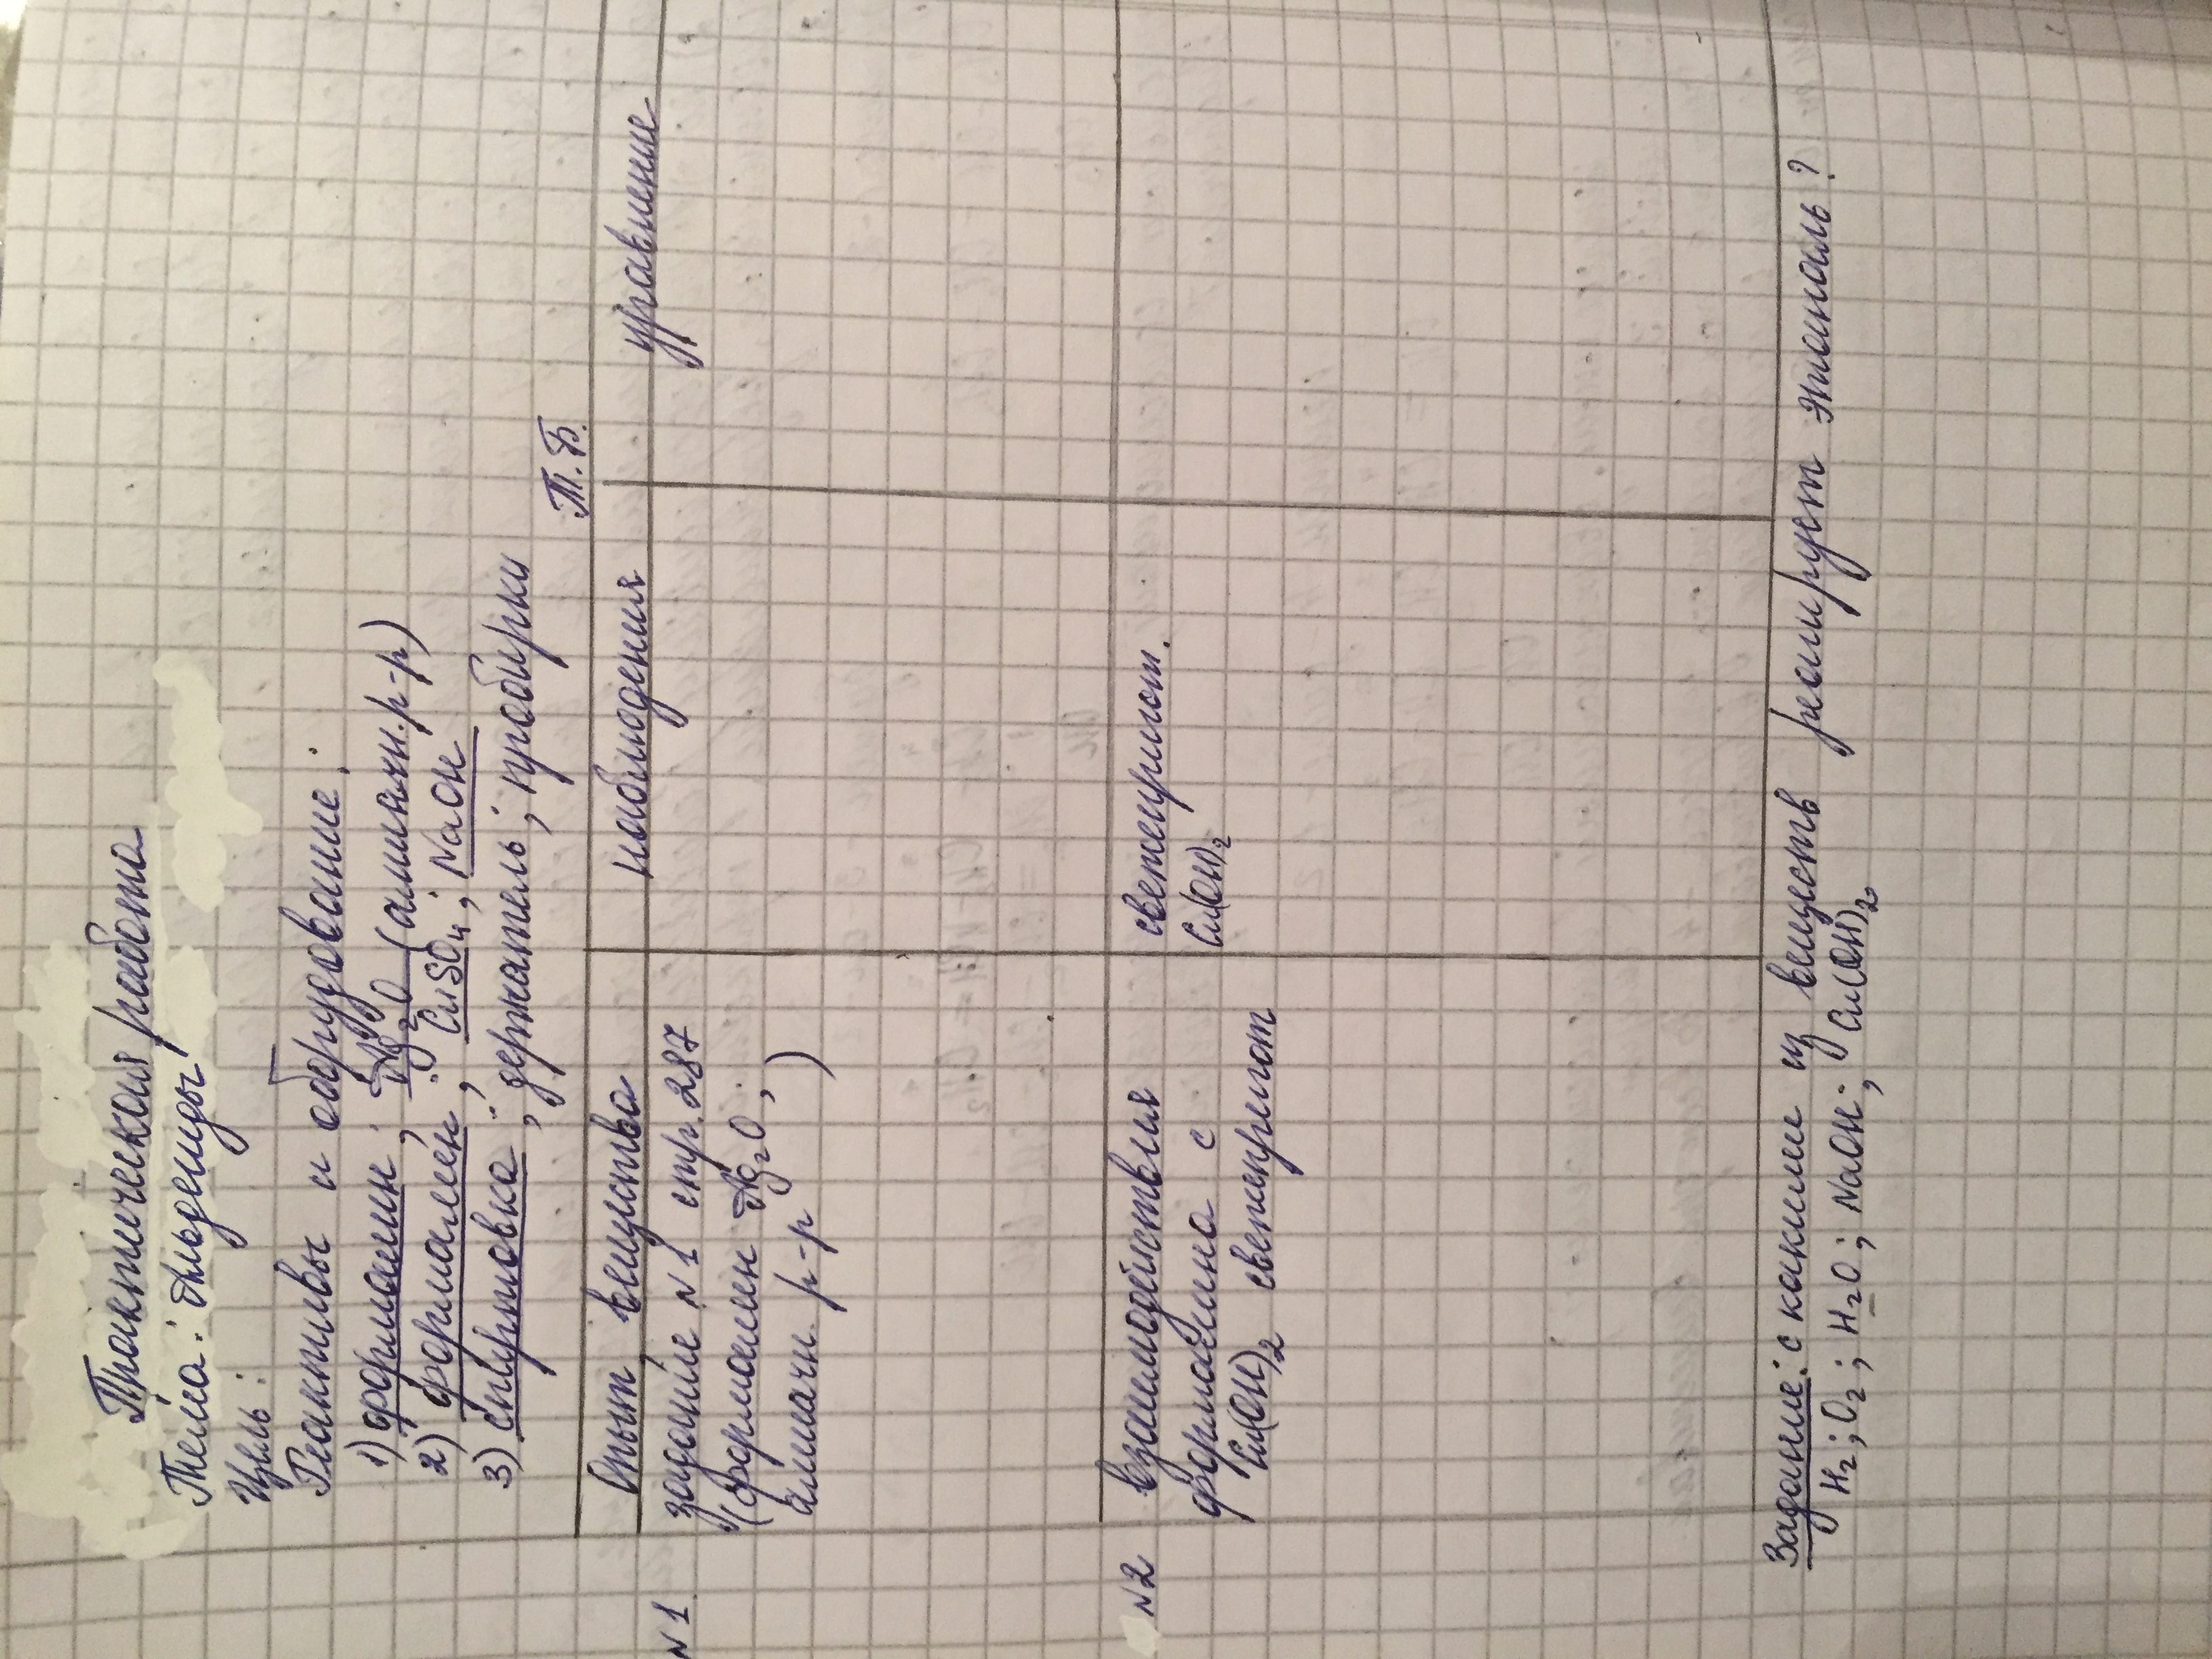 Практическая работа
Тема: Альдегиды
Цель:
Реактивы и оборудование:
1) формалин; Ag₂O (аммиачн. р-р)
2) формалин; CuSO₄; NaOH
3) спиртовка; держатель; пробирки
Т.Б.
Опыт, вещества наблюдения уравнение
N1 задание N1 стр. 287
(формалин Ag₂O,
аммиачн. р-р)
N2 взаимодействия свежепригот.
формалина с Cu(OH)₂
Cu(OH)₂ свежепригот
Задание: с какими из веществ реагирует этаналь?
H₂; O₂; H₂O; NaOH; Cu(OH)₂